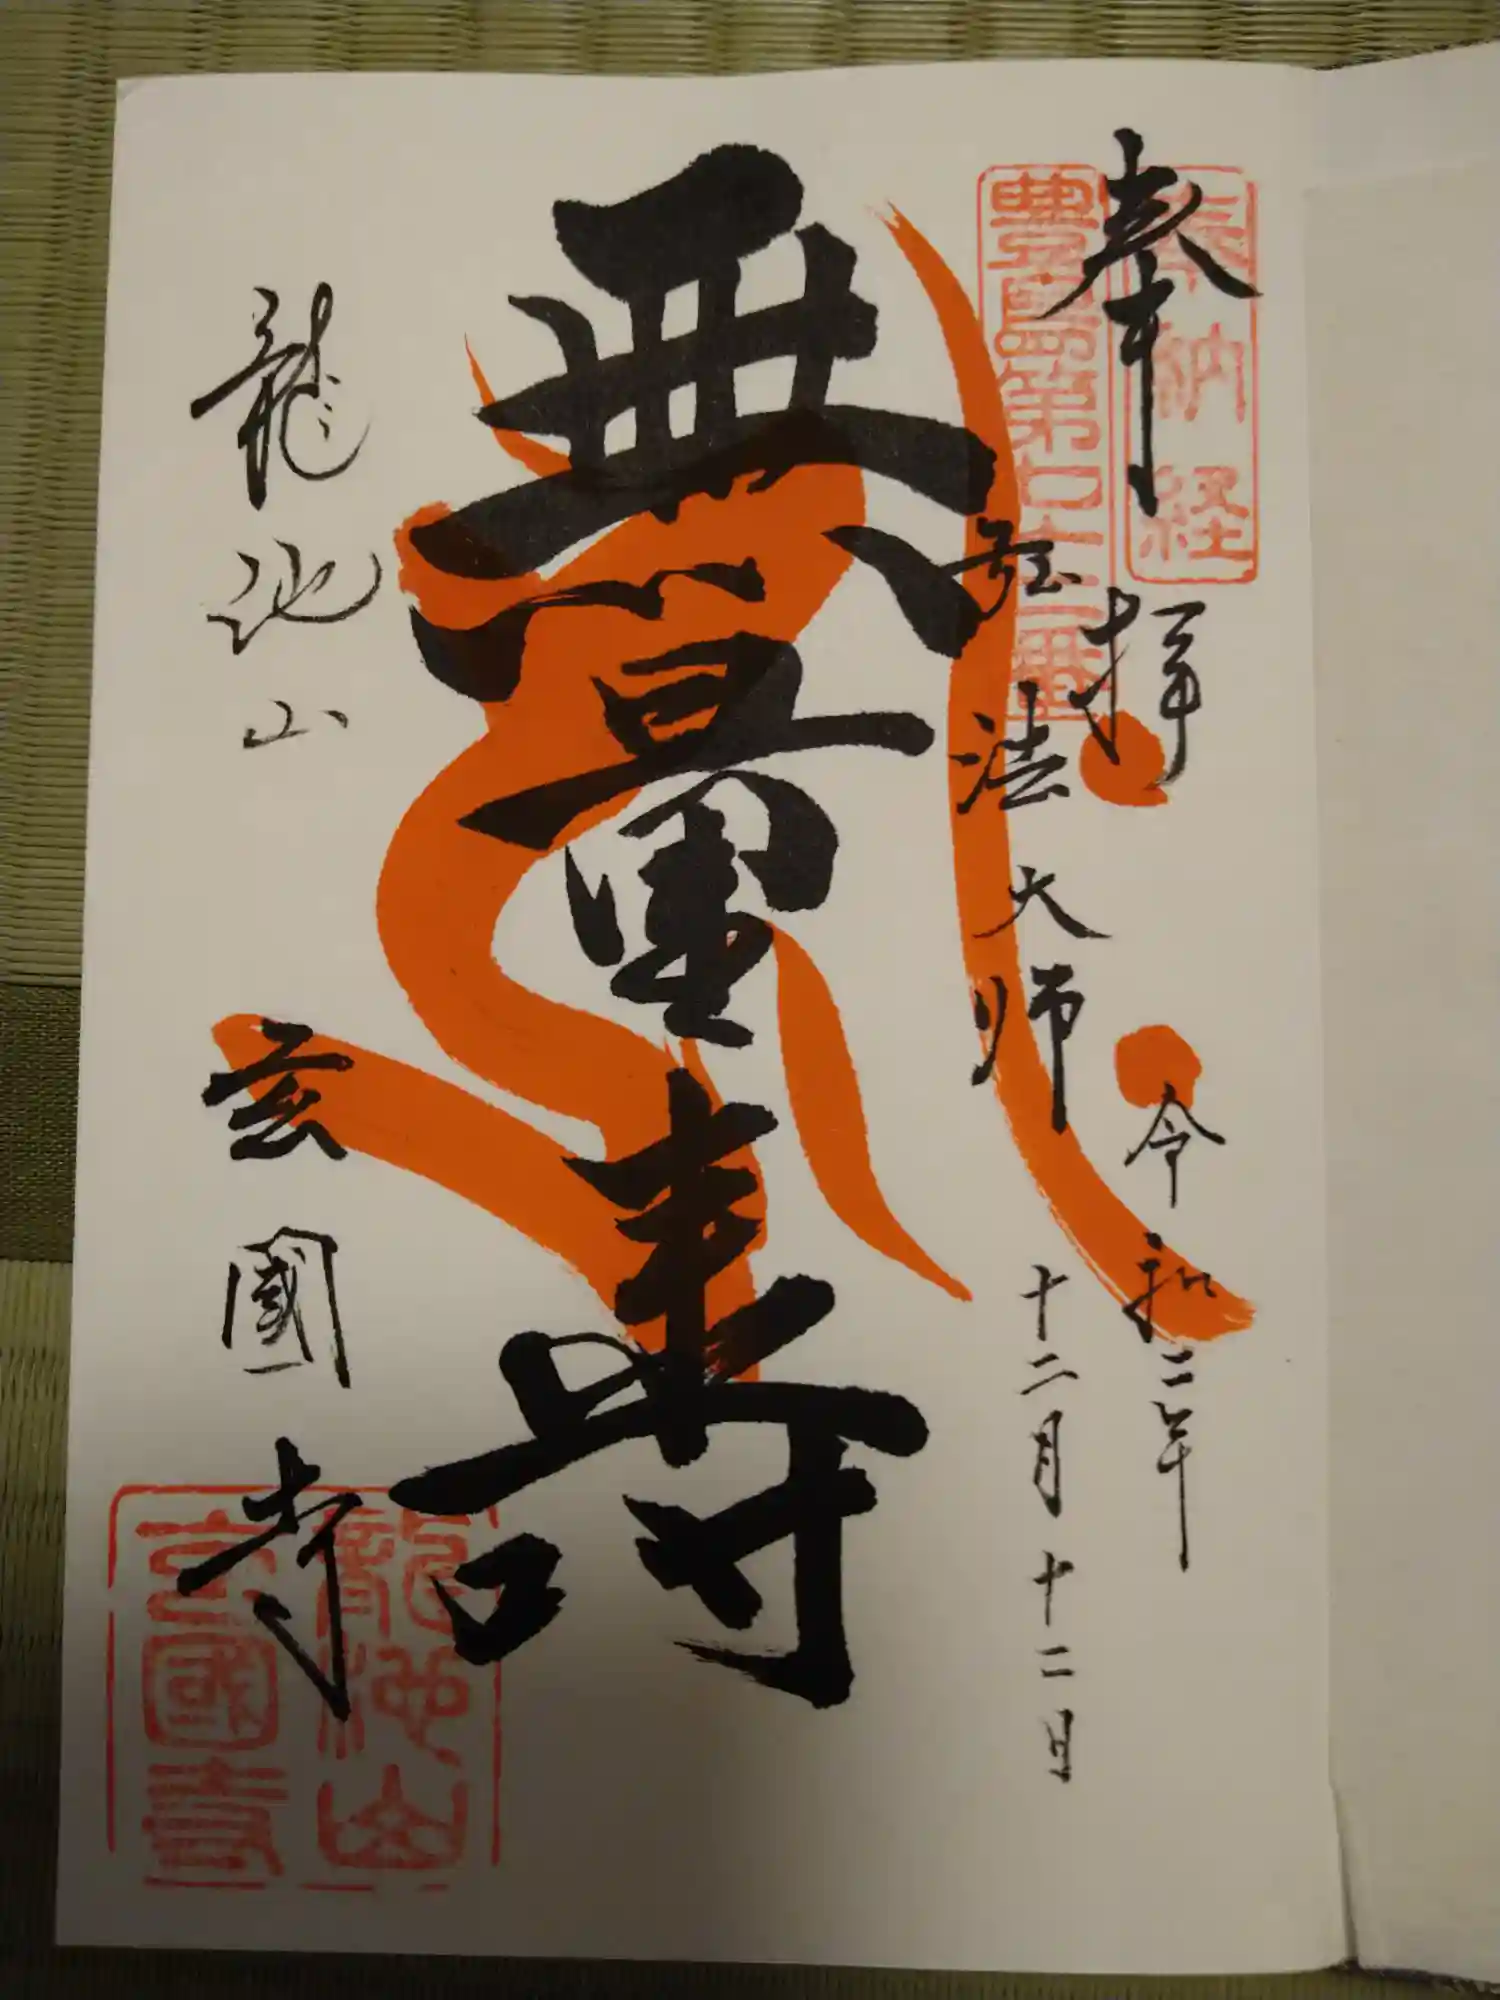 奉拝
奉納経
豊島第七十二番
令和二年
弘法大師
十二月十二日
無量壽
龍池山
玄國寺
龍池山
玄國寺